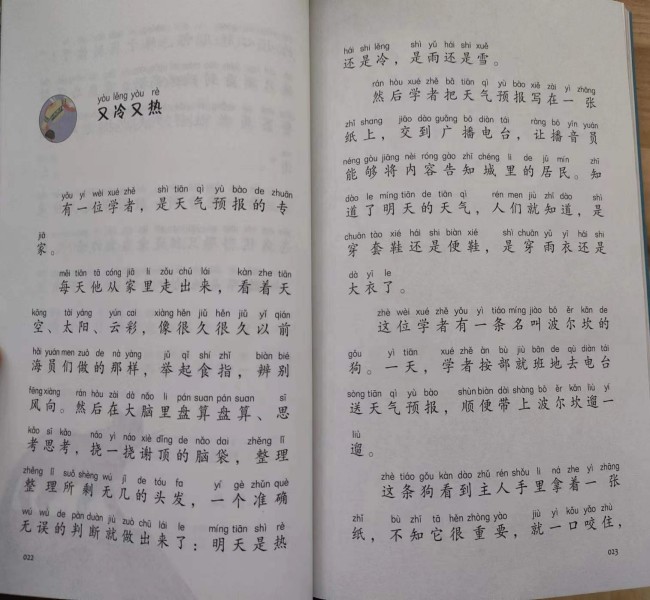 yòu lěng yòu rè
又冷又热
yǒu yí wèi xué zhě shì tiān qì yù bào de zhuān
有一位学者，是天气预报的专
jiā
家。
měi tiān tā cóng jiā li zǒu chū lái kàn zhe tiān
每天他从家里走出来，看着天
kōng tài yáng yún cai xiàng hěn jiǔ hěn jiǔ yǐ qián
空、太阳、云彩，像很久很久以前
hǎi yuán men zuò de nà yàng jǔ qǐ shí zhǐ biàn bié
海员们做的那样，举起食指，辨别
fēng xiàng rán hòu zài dà nǎo li pán suan pán suan sī
风向。然后在大脑里盘算盘算、思
kǎo sī kǎo náo yì náo xiè dǐng de nǎo dai zhěng lǐ
考思考，挠一挠谢顶的脑袋，整理
zhěng lǐ suǒ shèng wú jǐ de tóu fa yí gè zhǔn què
整理所剩无几的头发，一个准确
wú wù de pàn duàn jiù zuò chū lái le míng tiān shì rè
无误的判断就做出来了：明天是热
022
hái shi lěng shì yǔ hái shi xuě
还是冷，是雨还是雪。
rán hòu xué zhě bǎ tiān qì yù bào xiě zài yì zhāng
然后学者把天气预报写在一张
zhǐ shang jiāo dào guǎng bō diàn tái ràng bō yīn yuán
纸上，交到广播电台，让播音员
néng gòu jiāng nèi róng gào zhī chéng li de jū mín zhī
能够将内容告知城里的居民。知
dào le míng tiān de tiān qì rén men jiù zhī dào shì
道了明天的天气，人们就知道，是
chuān tào xié hái shi biàn xié shì chuān yǔ yī hái shi
穿套鞋还是便鞋，是穿雨衣还是
dà yī le
大衣了。
zhè wèi xué zhě yǒu yì tiáo míng jiào bō ěr kǎn de
这位学者有一条名叫波尔坎的
gǒu yì tiān xué zhě àn bù jiù bān de qù diàn tái
狗。一天，学者按部就班地去电台
sòng tiān qì yù bào shùn biàn dài shàng bō ěr kǎn liù yi
送天气预报，顺便带上波尔坎遛一
liù
遛。
zhè tiáo gǒu kàn dào zhǔ rén shǒu li ná zhe yì zhāng
这条狗看到主人手里拿着一张
zhǐ bù zhī tā hěn zhòng yào jiù yì kǒu yǎo zhù
纸，不知它很重要，就一口咬住，
023